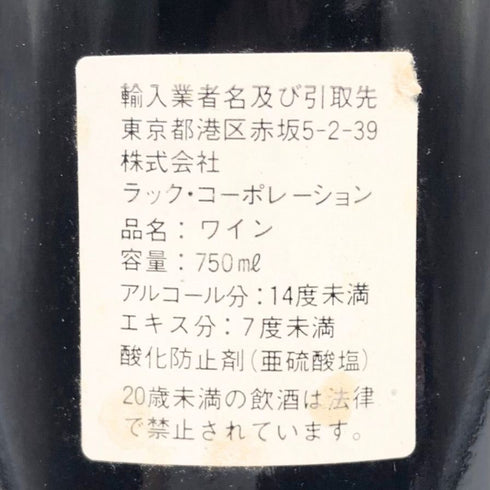 輸入業者名及び引取先
東京都港区赤坂5-2-39
株式会社
ラック・コーポレーション
品名：ワイン
容量：750ml
アルコール分：14度未満
エキス分：7度未満
酸化防止剤(亜硫酸塩)
20歳未満の飲酒は法律
で禁止されています。